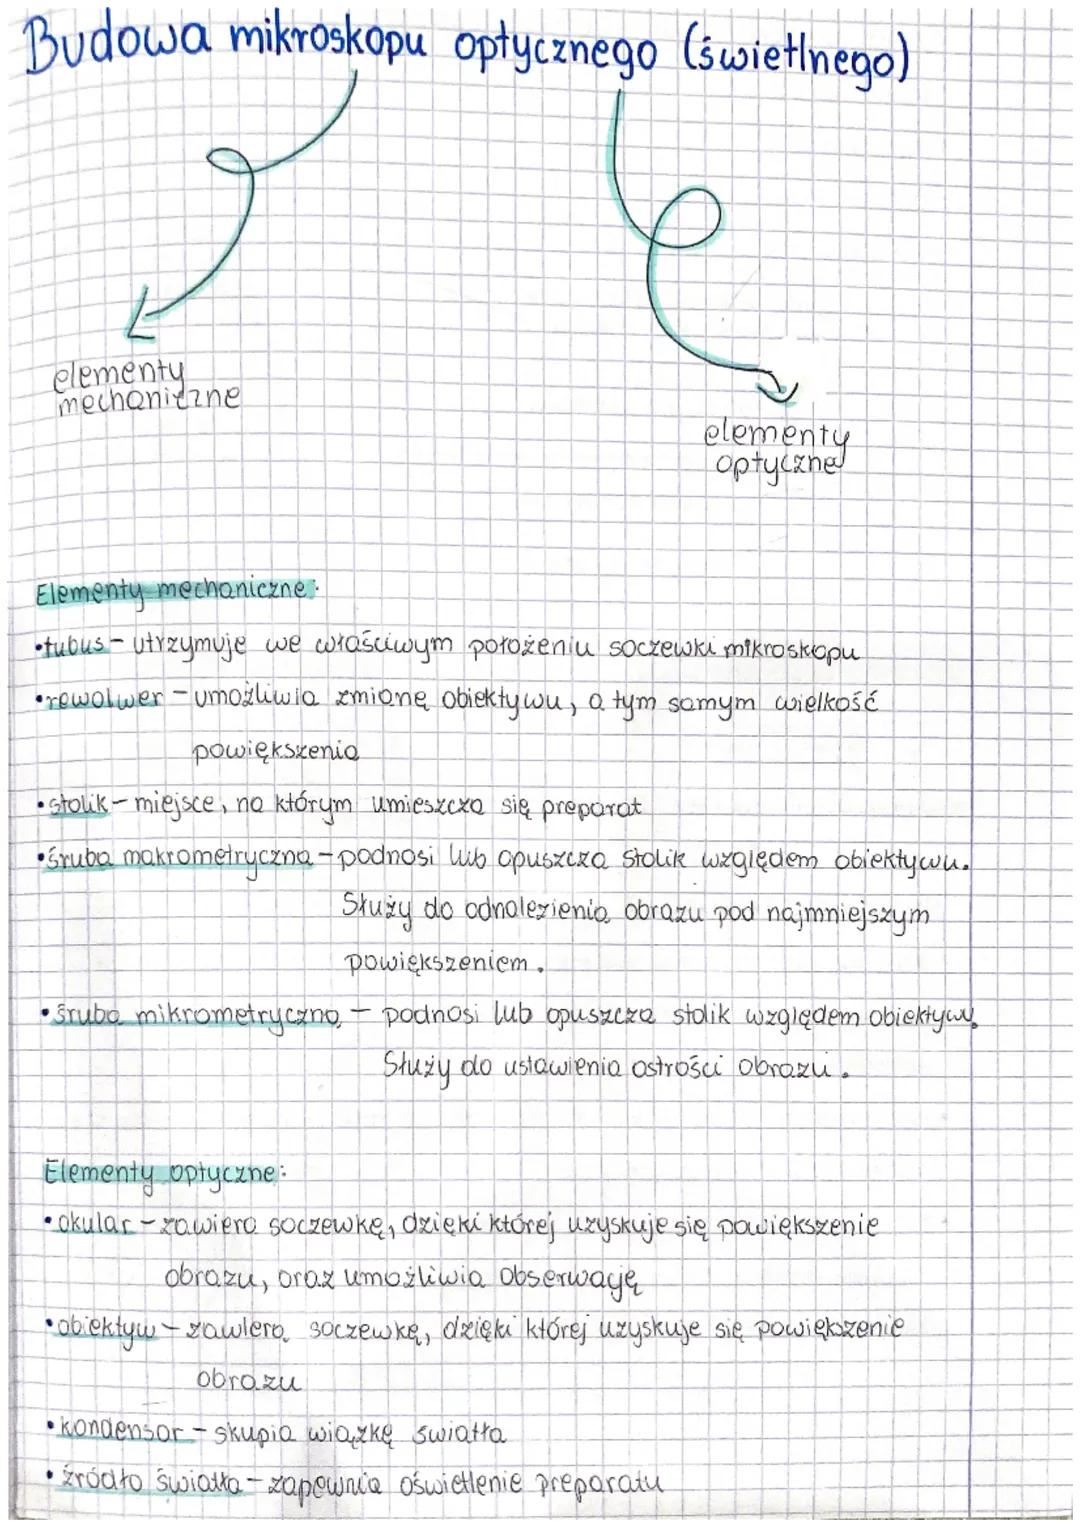 Budowa mikroskopu optycznego (świetlnego)
elementy
mechaniczne
elementy
optyczne
Elementy mechaniczne:
•tubus – utrzymuje we właściwym położeniu soczewki mikroskopu
•rewolwer – umożliwia zmianę obiektywu, a tym samym wielkość
powiększenia
•stolik – miejsce, na którym umieszcza się preparat
•śruba makrometryczna – podnosi lub opuszcza stolik względem obiektywu.
Służy do odnalezienia obrazu pod najmniejszym
powiększeniem.
•śruba mikrometryczna – podnosi lub opuszcza stolik względem obiektywu.
Służy do ustawienia ostrości obrazu.
Elementy optyczne:
•okular – zawiera soczewkę, dzięki której uzyskuje się powiększenie
obrazu, oraz umożliwia obserwację
•obiektyw – zawiera soczewkę, dzięki której uzyskuje się powiększenie
obrazu
•kondensor – skupia wiązkę światła
•źródło światła – zapewnia oświetlenie preparatu